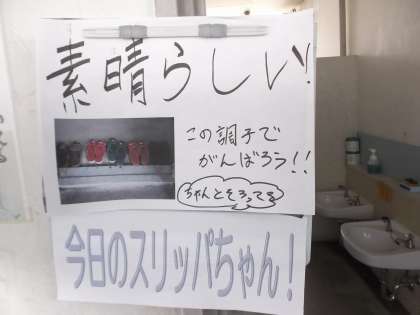 素晴らしい!
この調子で
がんばろう!!
ちゃんとそろってる
今日のスリッパちゃん!